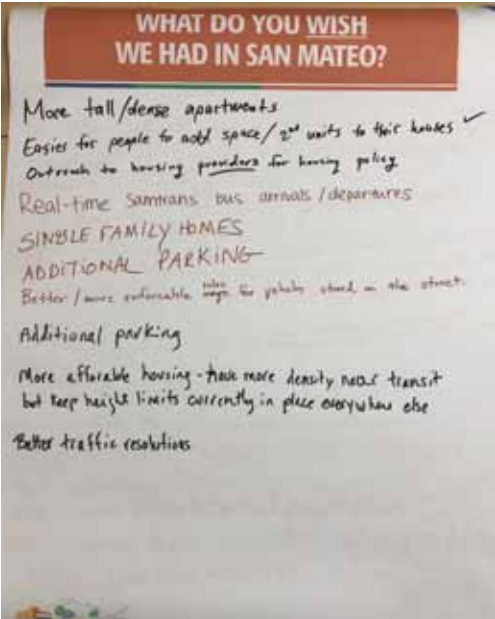 WHAT DO YOU WISH
WE HAD IN SAN MATEO?
More tall/dense apartments
Easier for people to add space/2nd units to their houses ✓
Outreach to housing providers for housing policy
Real-time Samtrans bus arrivals/departures
SINGLE FAMILY HOMES
ADDITIONAL PARKING
Better/more enforceable rules for vehicles stored on the street.
Additional parking
More afforable housing - have more density near transit
but keep height limits currently in place everywhere else
Better traffic resolutions